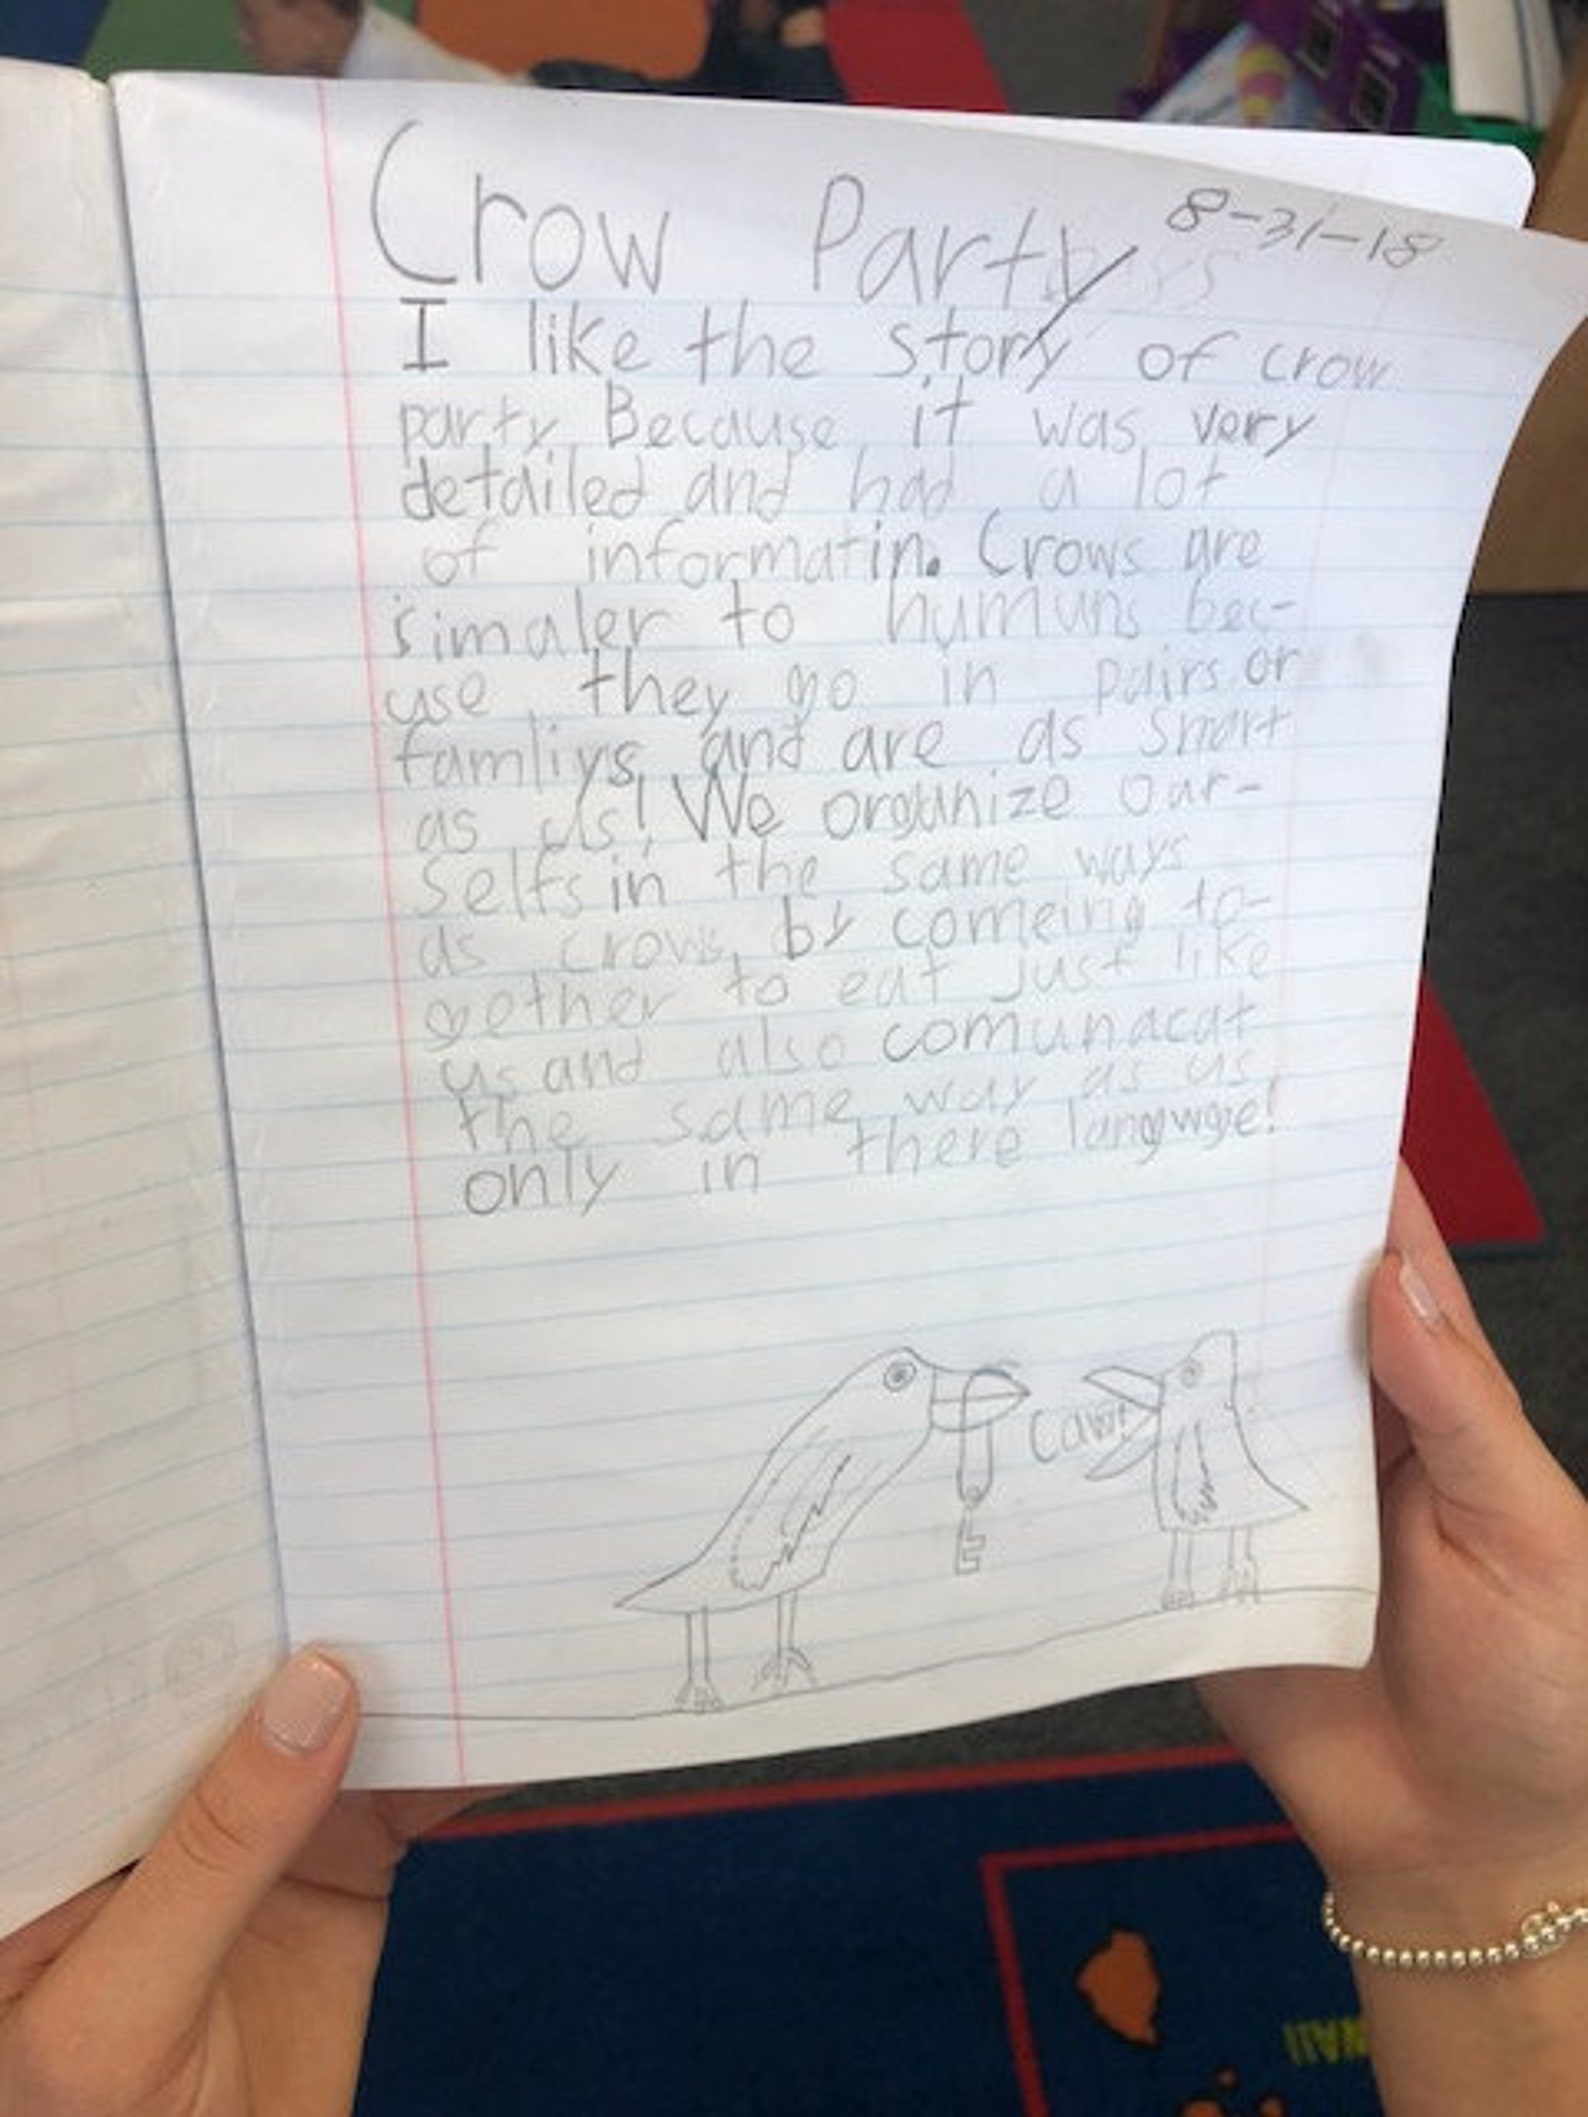 Crow Party
8-31-18
I like the story of crow
party Because it was very
detailed and had a lot
of informatin. Crows are
simaler to humuns bec-
use they go in pairs or
famliys and are as smart
as us! We organize our-
selfs in the same ways
as crows by comeing to-
gether to eat just like
us and also comunacat
the same way as us
only in there langwge!
Caw!